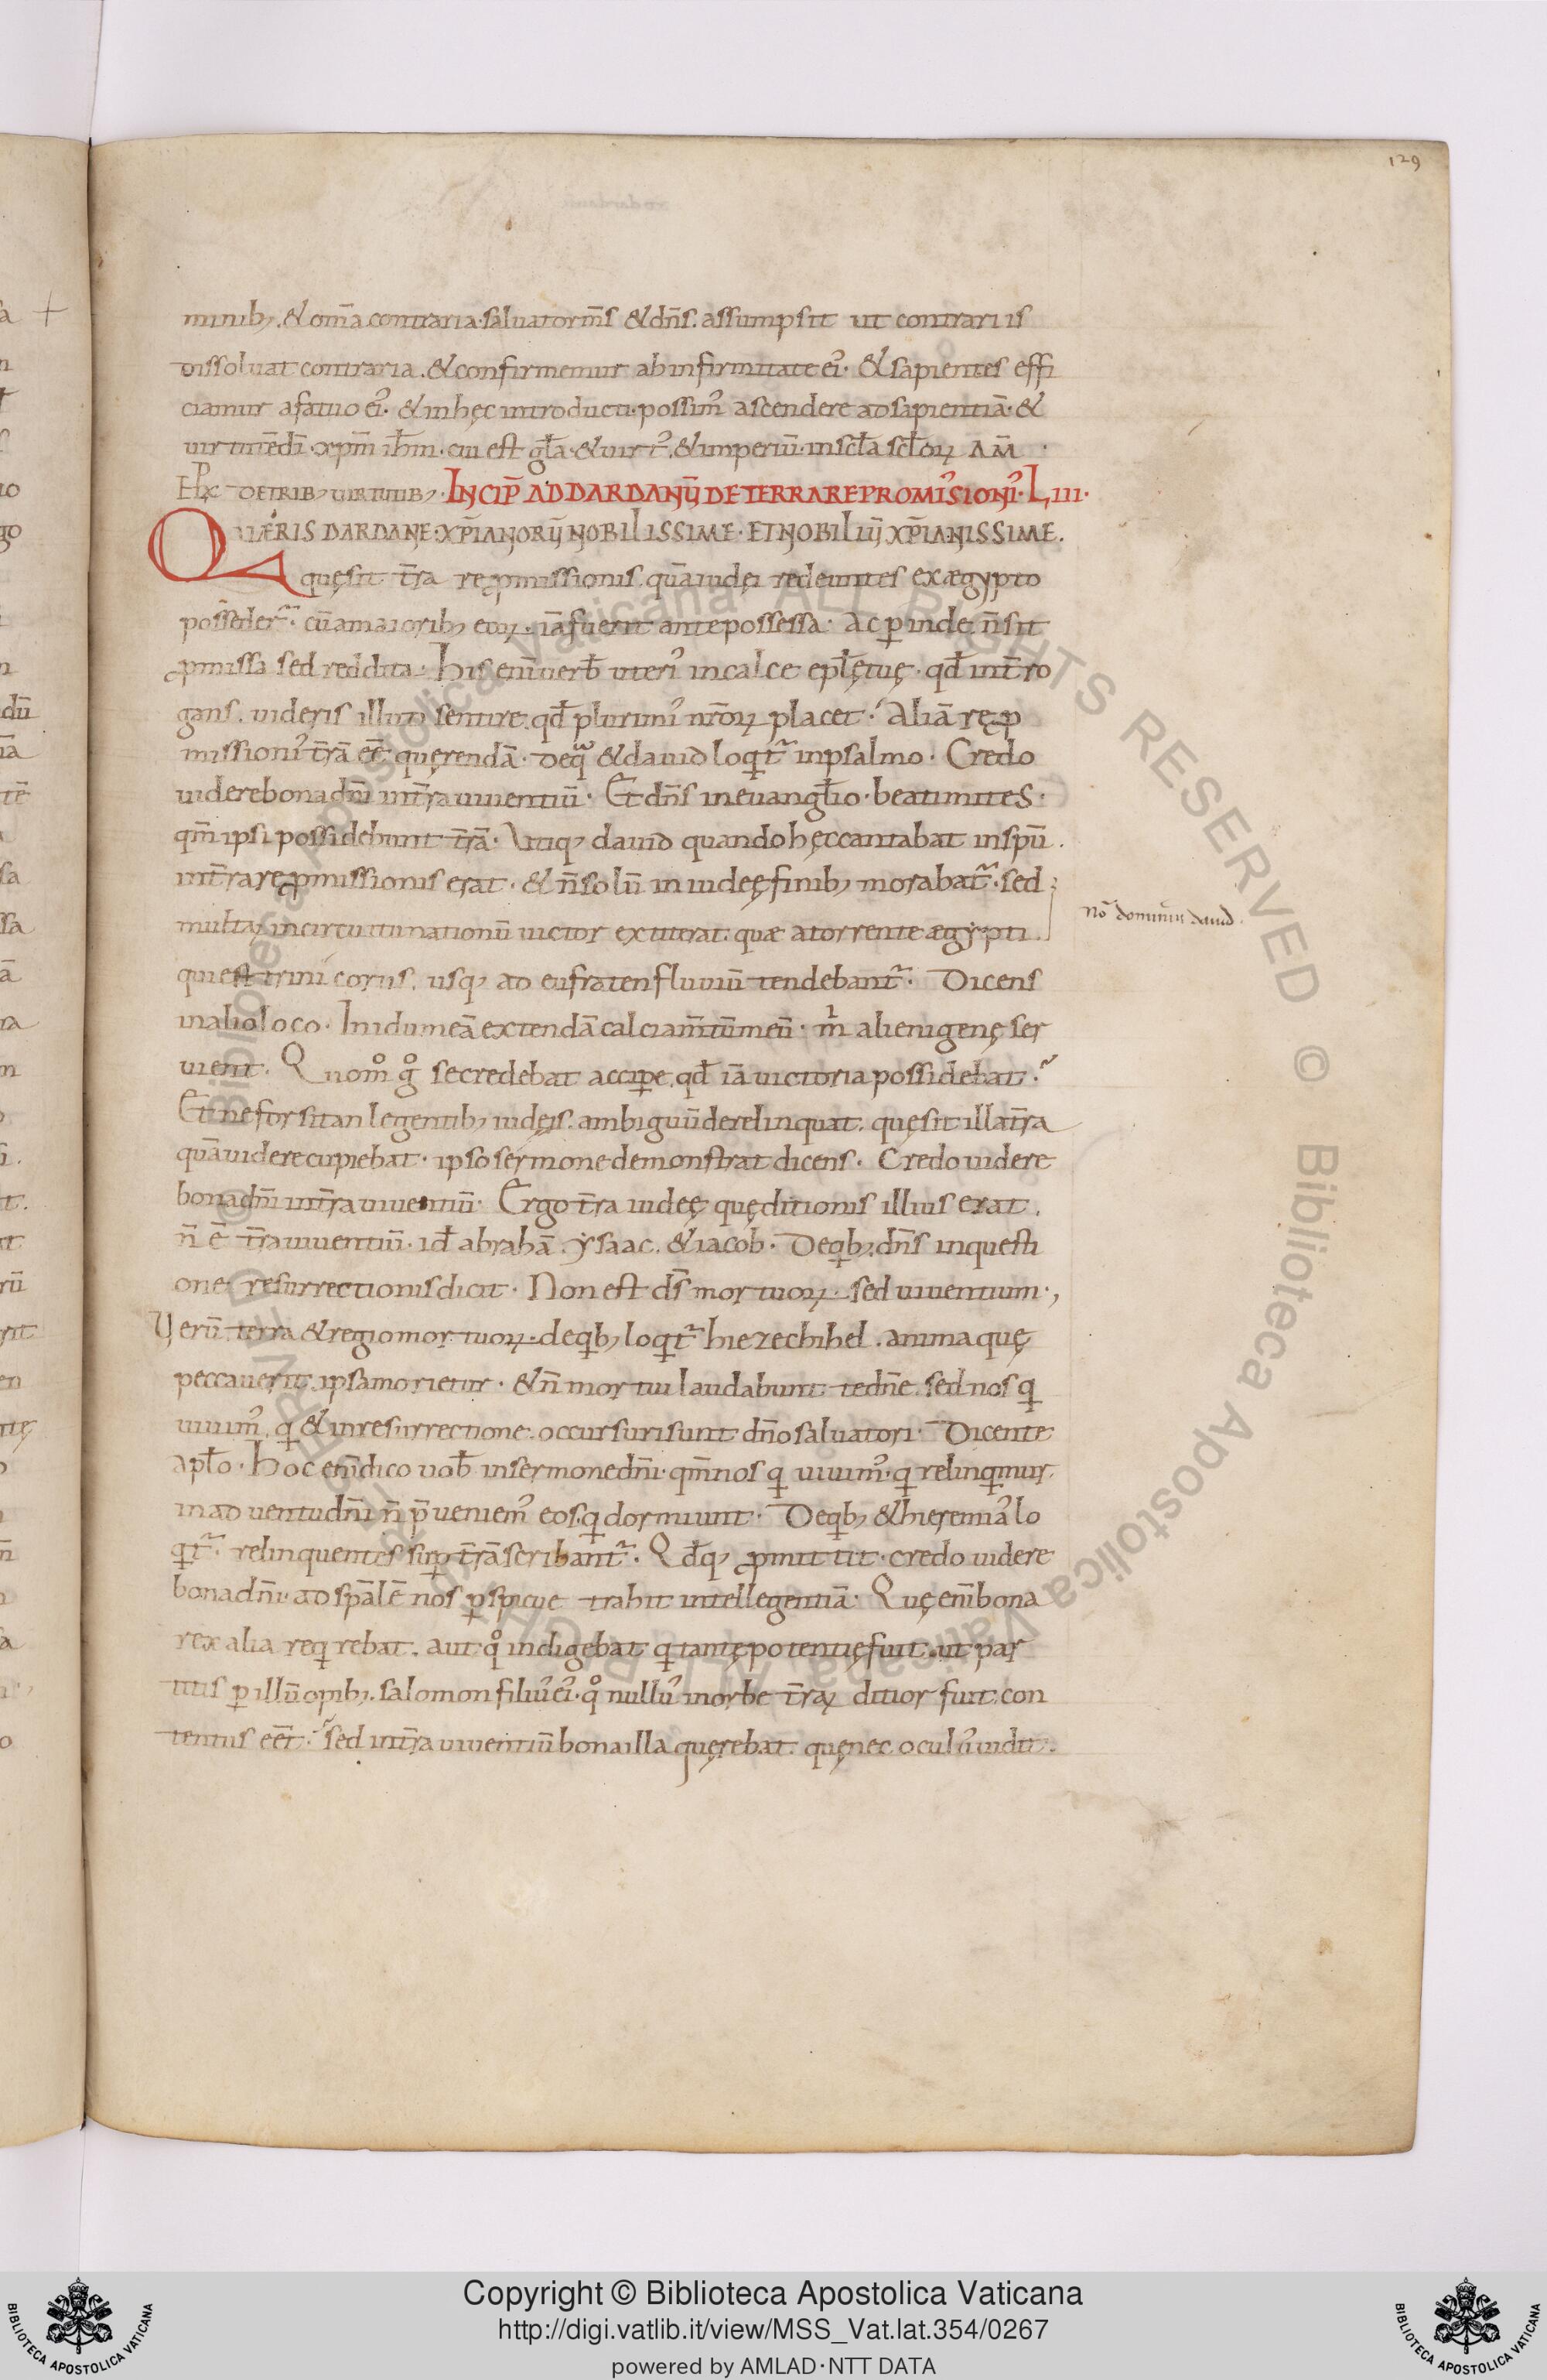 129
minib; , & om̄a contraria saluator nr̄s & dn̄s assumpsit ut contrariis
dissoluat contraria . & confirmemur ab infirmitate ei᾿ · & sapientes effi
ciamur a fatuo ei᾿ · & in hęc introducti · possim᾿ ascendere ad sapientiā · &
uirtutē dī xp̄m ih̄m · cui est gl̄a · & uirt᾿ · & imperiū · in scl̄a scl̄oꝝ AM̄ ·
EXPL̄ DE TRIB; VIRTUTIB; · INCIP̄ AD DARDANŪ DE TERRA REPROMISIONI᾿ · LIII ·
QUÆRIS DARDANE : XP̄IANORŪ NOBILISSIME · ET NOBILIŪ XP̄IANISSIME .
quę sit t̄ra reꝓmissionis . quā iudęi redeuntes ex ægypto
possēder̄ · cū a maiorib; eoꝝ · iā fuerit ante possessa · Ac ꝑinde n̄ sit
ꝓmissa sed reddita · His enī uerb̄ uteri᾿ in calce epl̄ę tuę · qd̄ int̄ro
gans . uideris illud sentire . qd̄ plurimi᾿ nr̄oꝝ placet · Aliā reꝓ
missioni᾿ t̄rā eē quęrendā · de qua & dauid loqit̄ in psalmo · Credo
uidere bona dn̄i in t̄ra uiuentiū · Et dn̄s in euangl̄io · beati mites ·
qm̄ ipsi possidebunt t̄rā · Utiq; dauid quando hęc cantabat in sp̄u .
in t̄ra reꝓmissionis erat · & n̄ solū in iudeę finib; morabat̄ · sed
multaꝝ in circuitu nationū uictor extiterat · quæ a torrente ægypti .
nō dominus dauid .
qui est rini corus . usq; ad eufraten fluuiū tendebant̄ · Dicens
in alio loco · In idumeā extendā calciam̄tū meū · m̄ alienigenę ser
uient · Quom° g° se credebat accipe . qd̄ iā uictoria possidebat ·
Et ne forsitan legentib; iudęis . ambiguū derelinquat . quę sit illa t̄ra
quā uidere cupiebat · ipso sermone demonstrat dicens · Credo uidere
bona dn̄i in t̄ra uiuentiū · Ergo t̄ra iudeę quę ditionis illius erat .
n̄ ē t̄ra uiuentiū · id̄ abrahā . ysaac . & iacob · De qib; dn̄s in questi
one resurrectionis dicit · Non est ds̄ mortuoꝝ · sed uiuentium ·,
Verū terra & regio mortuoꝝ · de qib; loqit̄ hiezechihel . anima quę
peccauerit . ipsa morietur · & n̄ mortui laudabunt te dn̄e . sed nos qi
uiuim᾿ . qi & in resurrectione occursuri sunt dn̄o saluatori · Dicente
apl̄o · Hoc enī dico uob̄ in sermone dn̄i · qm̄ nos qi uiuim᾿ · qi relinqimur .
in aduentu dn̄i n̄ p̄ueniem᾿ eos . qi dormiunt · De qib; & hieremia᾿ lo
qit̄ · relinquentes sup t̄rā scribant̄ · Qd̄q; ꝓmittit · credo uidere
bona dn̄i · ad sp̄alē nos ꝑspicue trahit intellegentiā · Quę enī bona
rex alia reqirebat . aut q° indigebat qi tantę potentię fuit . ut par
titis ꝑ illū opib; . salomon filiu᾿ ei᾿ · q° nullu᾿ in orbe t̄raꝝ ditior fuit . con
tentus eēt · sed in t̄ra uiuentiū bona illa quęrebat . quę nec oculu᾿ uidit .
Copyright © Biblioteca Apostolica Vaticana
http://digi.vatlib.it/view/MSS_Vat.lat.354/0267
powered by AMLAD·NTT DATA